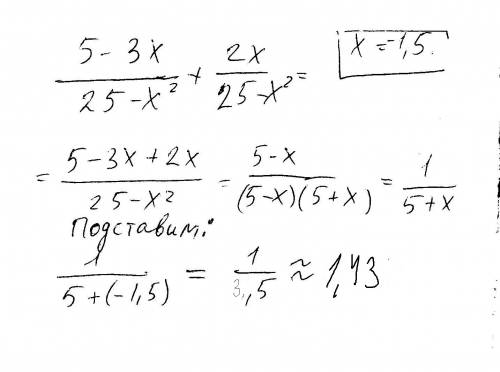 (5-3x)/(25-x²) + 2x/(25-x²) = x = -1,5.
= (5-3x+2x)/(25-x²) = (5-x)/((5-x)(5+x)) = 1/(5+x)
Подставим:
1/(5+(-1,5)) = 1/3,5 ≈ 1,43